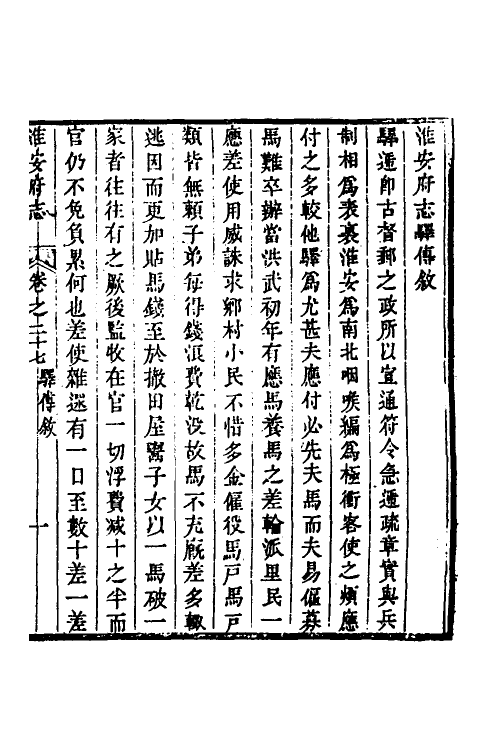 淮安府志驛傳敘
驛遞卽古督郵之政所以宣通符令急遞疏章實與兵
制相爲表裏淮安爲南北咽喉編爲極衝客使之頻應
付之多較他驛爲尤甚夫應付必先夫馬而夫易僱募
馬難卒辦當洪武初年有應馬養馬之差輪派里民一
應差使用威誅求鄉村小民不惜多金僱役馬戸馬戸
類皆無賴子弟每得錢濵費乾没故馬不充廐差多輙
逃因而更加貼馬錢至於撤田屋鬻子女以一馬破一
家者往往有之厥後監牧在官一切浮費减十之半而
官仍不免負累何也差使雜遝有一日至數十差一差
淮安府志 卷之二十七 驛傳敘 一